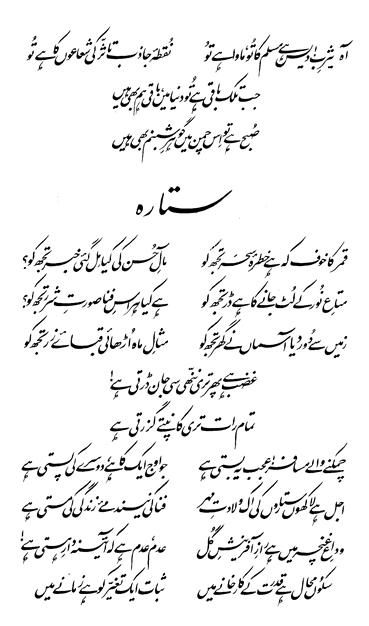 آہ یثرب! دیس ہے مسلم کا تو، ماوا ہے تو نقطۂ جاذب تاثر کی شعاعوں کا ہے تو
جب تلک باقی ہے تو دنیا میں، باقی ہم بھی ہیں
صبح ہے تو اس چمن میں گوہر شبنم بھی ہیں
ستارہ
قمر کا خوف کہ ہے خطرۂ سحر تجھ کو مآل حسن کی کیا مل گئی خبر تجھ کو؟
متاع نور کے لٹ جانے کا ہے ڈر تجھ کو ہے کیا ہراس فنا صورت شرر تجھ کو؟
زمیں سے دور دیا آسماں نے گھر تجھ کو مثال ماہ اڑھائی قبائے زر تجھ کو
غضب ہے پھر تری ننھی سی جان ڈرتی ہے!
تمام رات تری کانپتے گزرتی ہے
چمکنے والے مسافر! عجب یہ بستی ہے جو اوج ایک کا ہے دوسرے کی پستی ہے
اجل ہے لاکھوں ستاروں کی اک ولادت مہر فنا کی نیند مے زندگی کی مستی ہے
وداع غنچہ میں ہے راز آفرینش گل عدم عدم ہے کہ آئینہ دار ہستی ہے!
سکوں محال ہے قدرت کے کارخانے میں ثبات ایک تغیر کو ہے زمانے میں